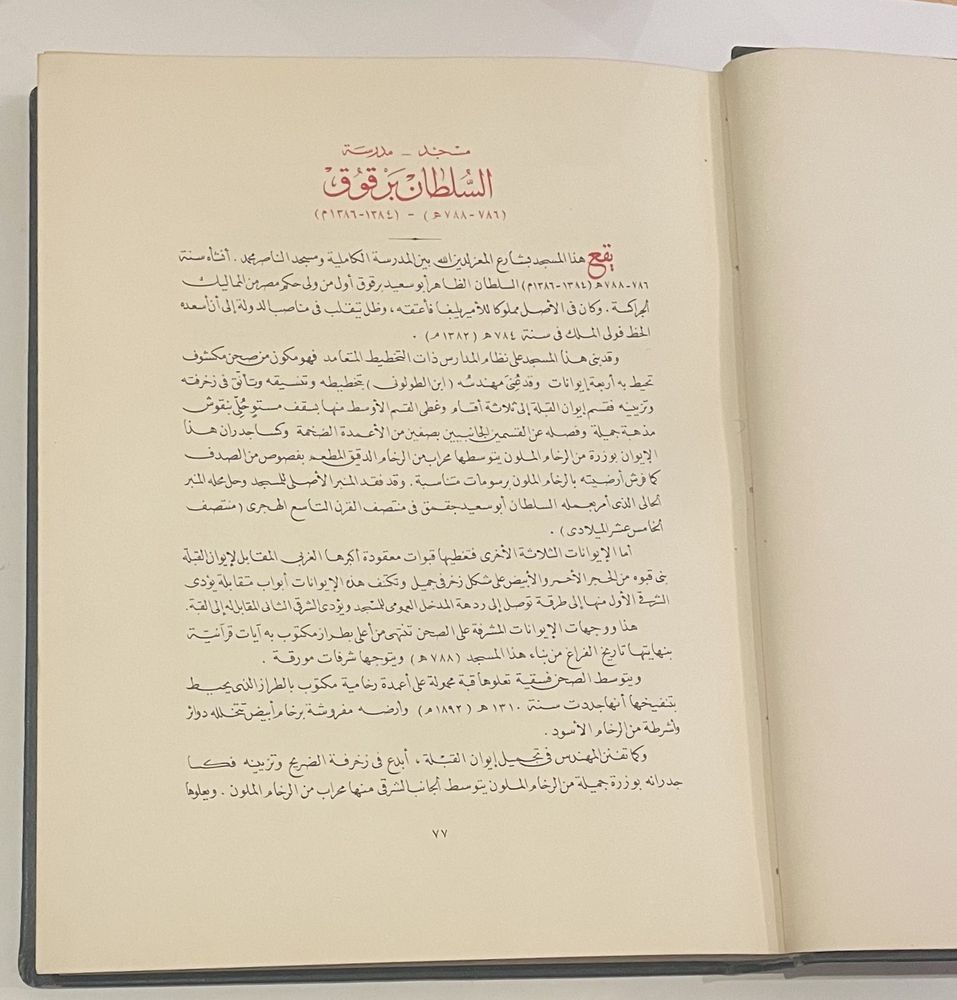 مسجد - مدرسة
السُّلطان بَرقوُق
(٧٨٦-٧٨٨ه) - (١٣٨٤-١٣٨٦م)
يقع هذا المسجد بشارع المعز لدين الله بين المدرسة الكاملية ومسجد الناصر محمد . أنشأه سنة
٧٨٦-٧٨٨ه (١٣٨٤-١٣٨٦م) السلطان الظاهر أبو سعيد برقوق أول من ولى حكم مصر من المماليك
الجراكسة . وكان فى الأصل مملوكا للأمير يلبغا فأعتقه ، وظل يتقلب فى مناصب الدولة إلى أن أسعده
الحظ فولى الملك فى سنة ٧٨٤ه (١٣٨٢م) .
وقد بنى هذا المسجد على نظام المدارس ذات التخطيط المتعامد فهو مكون من صحن مكشوف
تحيط به أربعة إيوانات وقد عُنىَ مهندسُه (ابن الطولونى) بتخطيطه وتنسيقه وتأنق فى زخرفته
وتزيينه فقسم إيوان القبلة إلى ثلاثة أقسام وغطى القسم الأوسط منها بسقف مستوٍ حُلِّىَ بنقوش
مذهبة جميلة وفصله عن القسمين الجانبيين بصفين من الأعمدة الضخمة وكسا جدران هذا
الإيوان بوزرة من الرخام الملون يتوسطها محراب من الرخام الدقيق المطعم بفصوص من الصدف
كما فرش أرضيته بالرخام الملون برسومات متناسبة . وقد فقد المنبر الأصلى للمسجد وحل محله المنبر
الحالى الذى أمر بعمله السلطان أبو سعيد جقمق فى منتصف القرن التاسع الهجرى (منتصف
الخامس عشر الميلادى) .
أما الإيوانات الثلاثة الأخرى فتغطيها قبوات معقودة أكبرها الغربى المقابل لإيوان القبلة
بنى قبوه من الحجر الأحمر والأبيض على شكل زخرفى جميل وتكتنف هذه الإيوانات أبواب متقابلة يؤدى
الشرقى الأول منها إلى طرقة توصل إلى ردهة المدخل العمومى للمسجد ويؤدى الشرقى الثانى المقابل له إلى القبة.
هذا ووجهات الإيوانات المشرفة على الصحن تنتهى من أعلى بطراز مكتوب به آيات قرآنية
بنهايتها تاريخ الفراغ من بناء هذا المسجد (٧٨٨ه) ويتوجها شرفات مورقة .
ويتوسط الصحن فسقية تعلوها قبة محمولة على أعمدة رخامية مكتوب بالطراز الذى يحيط
بتنفيخها أنها جددت سنة ١٣١٠ه (١٨٩٢م) وأرضه مفروشة برخام أبيض تتخلله دوائر
وأشرطة من الرخام الأسود .
وكما تفنن المهندس فى تجميل إيوان القبلة ، أبدع فى زخرفة الضريح وتزيينه فكسا
جدرانه بوزرة جميلة من الرخام الملون يتوسط الجانب الشرقى منها محراب من الرخام الملون . ويعلوها
٧٧